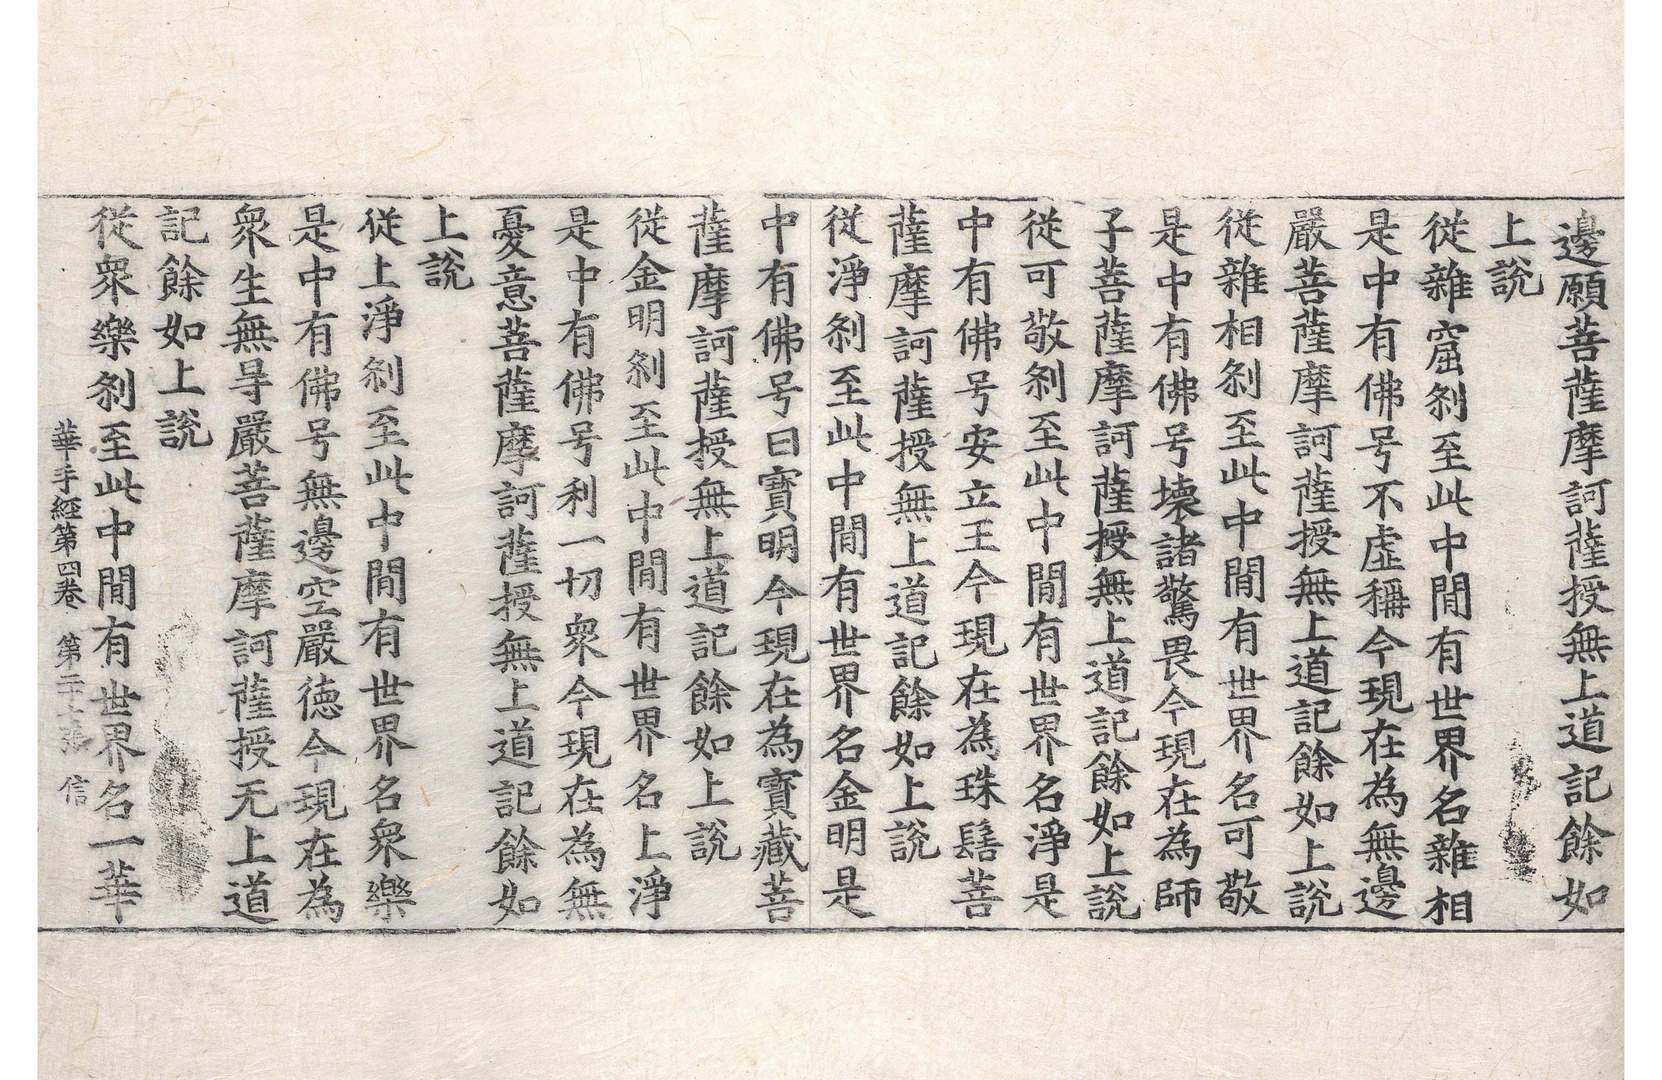 邊願菩薩摩訶薩授無上道記餘如
上說
從雜窟刹至此中閒有世界名雜相
是中有佛号不虛稱今現在為無邊
嚴菩薩摩訶薩授無上道記餘如上說
從雜相刹至此中閒有世界名可敬
是中有佛号壞諸驚畏今現在為師
子菩薩摩訶薩授無上道記餘如上說
從可敬刹至此中閒有世界名淨是
中有佛号安立王今現在為珠髻菩
薩摩訶薩授無上道記餘如上說
從淨刹至此中閒有世界名金明是
中有佛号曰寶明今現在為寶藏菩
薩摩訶薩授無上道記餘如上說
從金明刹至此中閒有世界名上淨
是中有佛号利一切衆今現在為無
憂意菩薩摩訶薩授無上道記餘如
上說
從上淨刹至此中閒有世界名衆樂
是中有佛号無邊空嚴德今現在為
衆生無㝵嚴菩薩摩訶薩授无上道
記餘如上說
從衆樂刹至此中閒有世界名一華
華手經第四卷 第二十張 信